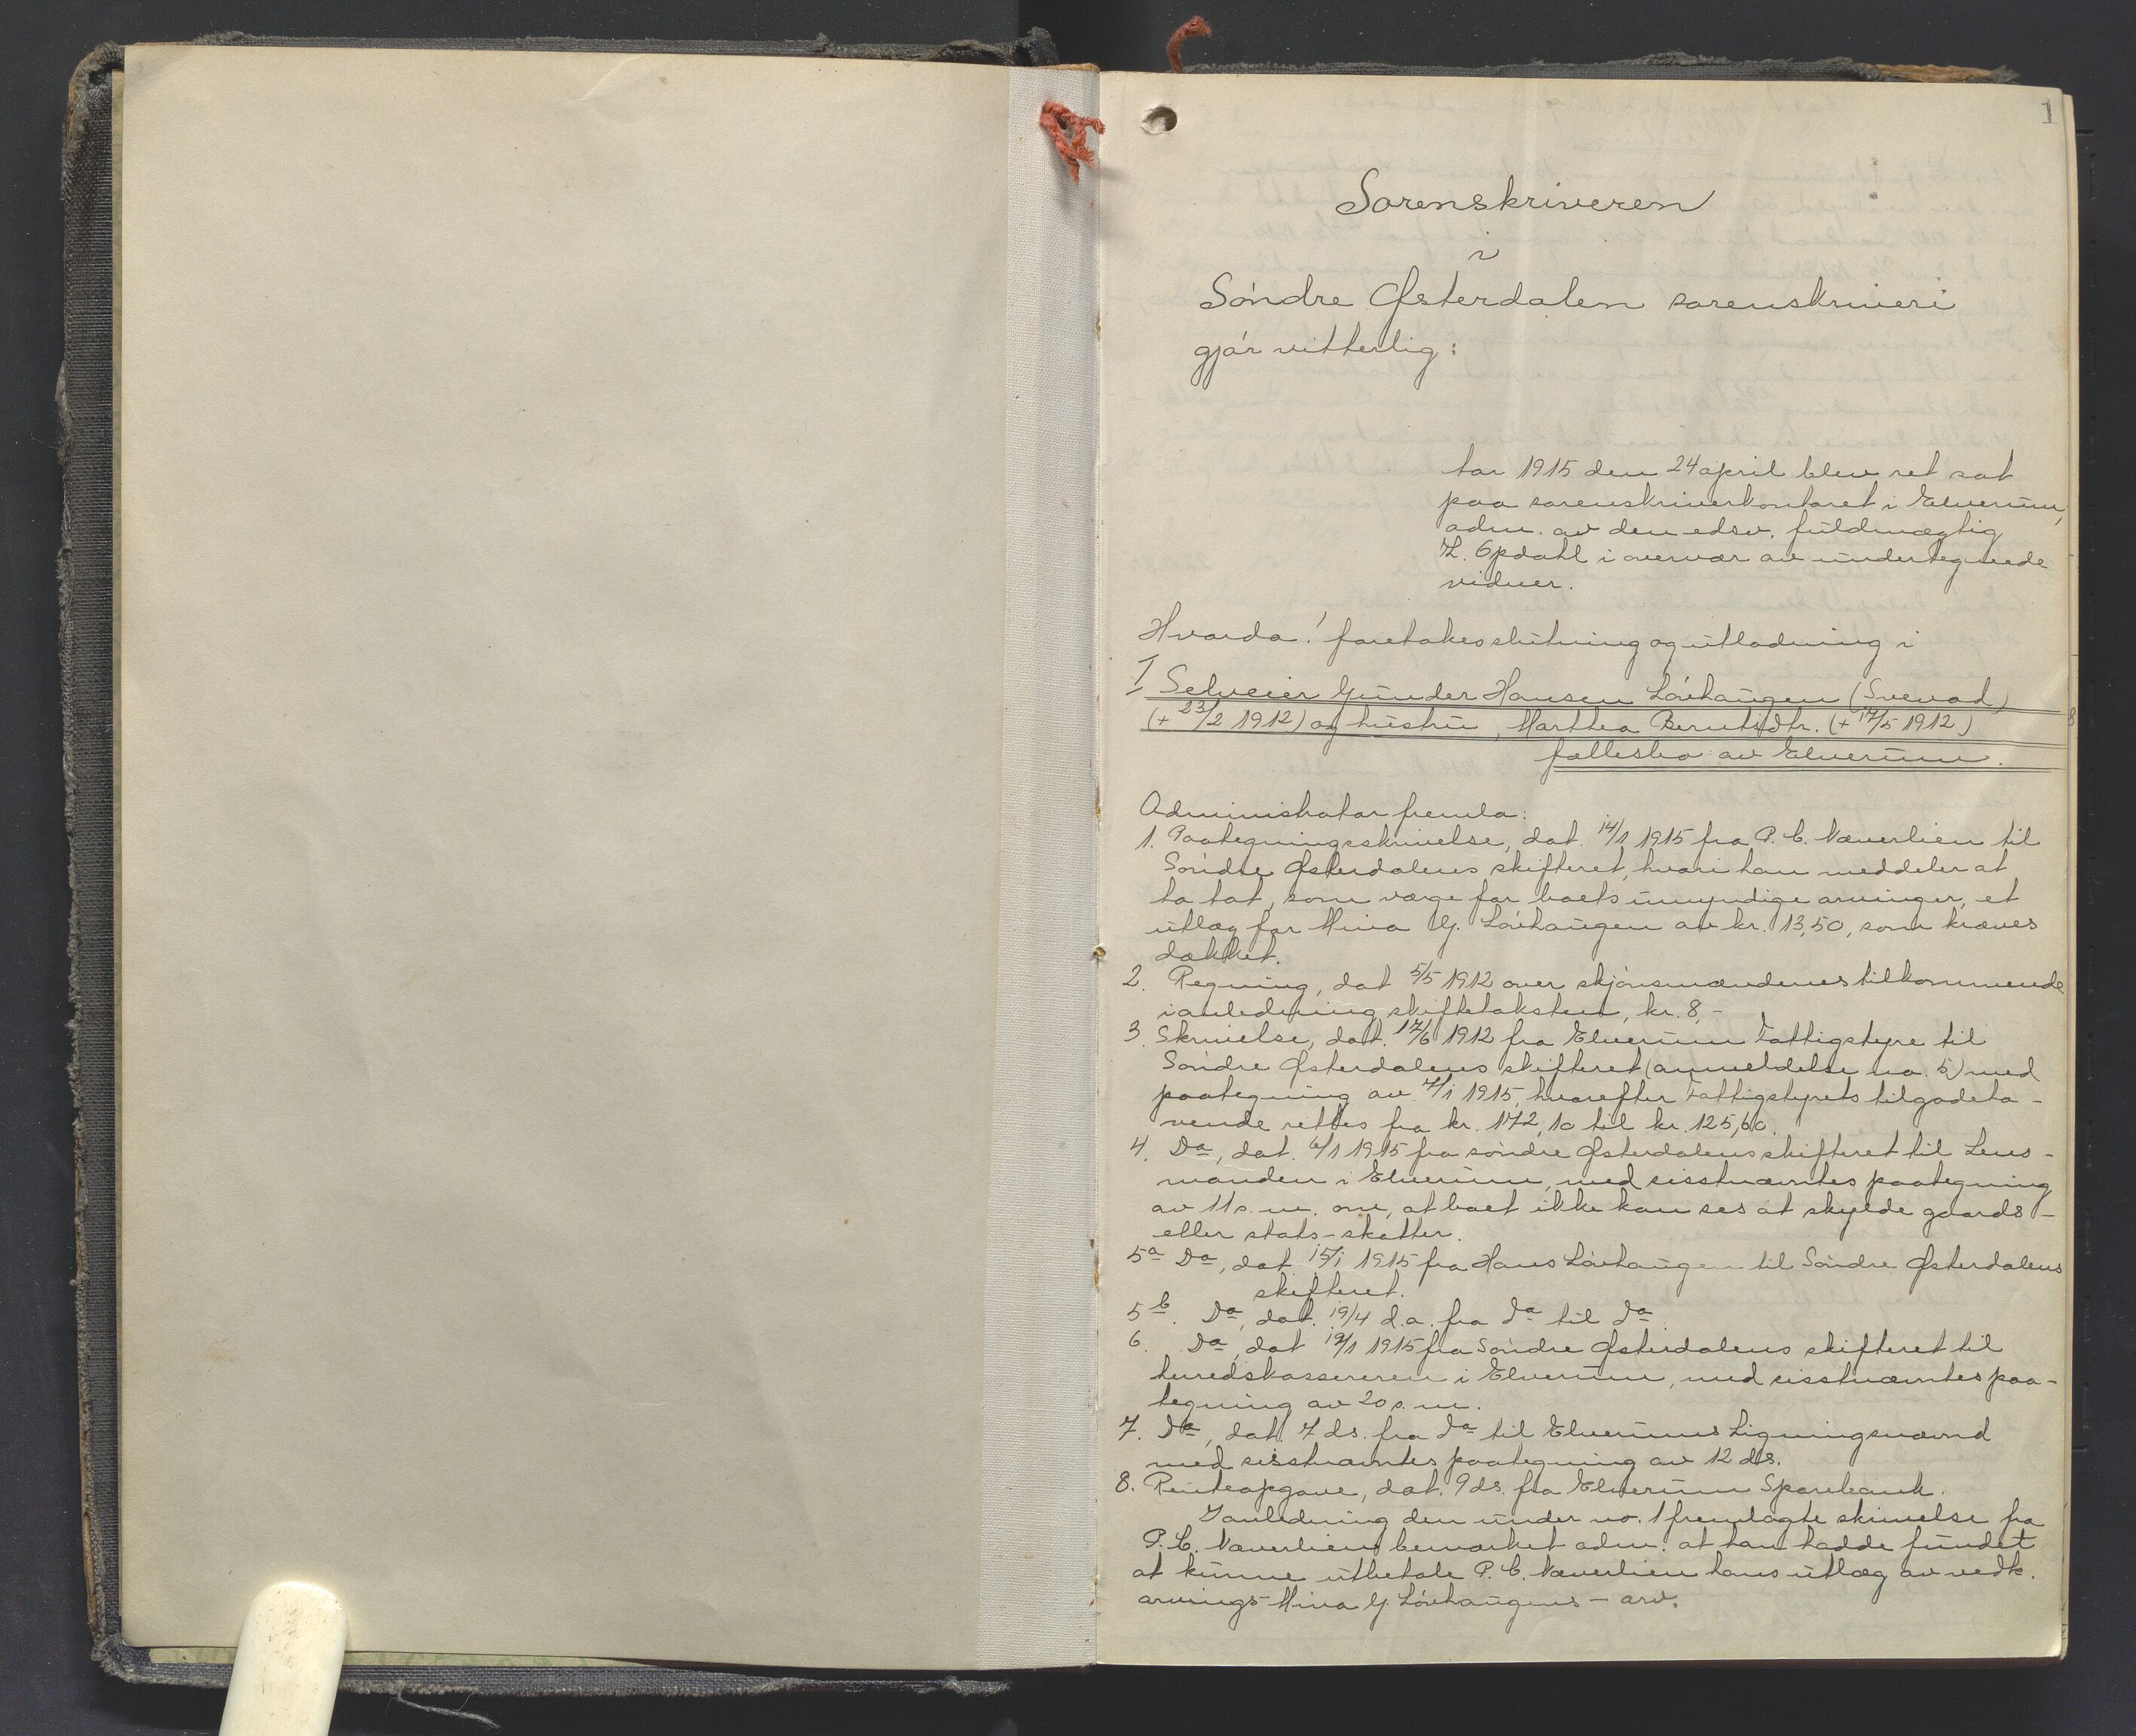 1
Sorenskriveren
i
Søndre Østerdalen sorenskriveri
gjør vitterlig:
Aar 1915 den 24 april blev ret sat
paa sorenskriverkontoret i Elverum,
adm. av den edsv. fuldmægtig
H. Opdahl i overvær av undertegnede
vidner.
Hvorda! foretokes slutning og utlodning i
I Selveier Gunder Hansen Løvhaugen (Svevad)
(+ 23/2 1912) og hustru, Marthea Berntsdtr. (+ 17/5 1912)
fællesbo av Elverum.
Administrator fremla:
1. Paategningsskrivelse, dat. 14/1 1915 fra P. C. Næverlien til
Søndre Østerdalens skifteret, hvori han meddeler at
ha hat, som værge for boets umyndige arvinger, et
utlæg for Mina G. Løvhaugen av kr. 13,50, som kræves
dækket.
2. Regning, dat 5/5 1912 over skjønsmændenes tilkommende
i anledning skiftetaksten, kr. 8,-
3. Skrivelse, dat. 17/6 1912 fra Elverum Fattigstyre til
Søndre Østerdalens skifteret (anmeldelse no. 5) med
paategning av 7/1 1915, hvorefter Fattigstyrets tilgodeha-
vende rettes fra kr. 172,10 til kr. 125,60.
4. Do, dat. 6/1 1915 fra søndre Østerdalens skifteret til Lens-
manden i Elverum, med sisstnævntes paategning
av 11 s. m. om, at boet ikke kan ses at skylde gaards-
eller stats-skatter.
5a Do, dat. 15/1 1915 fra Hans Løvhaugen til Søndre Østerdalens
skifteret.
5b. Do, dat. 19/4 d.a. fra do til do.
6. Do, dat 19/1 1915 fra Søndre Østerdalens skifteret til
herredskassereren i Elverum, med sisstnævntes paa-
tegning av 20 s. m.
7. Do, dat. 7 ds. fra do til Elverums Ligningsnævnd
med sisstnævntes paategning av 12 ds.
8. Renteopgave, dat. 9 ds. fra Elverum Sparebank.
I anledning den under no. 1 fremlagte skrivelse fra
P. C. Næverlien bemærket adm. at han hadde fundet
at kunne utbetale P. C. Næverlien hans utlæg av vedk.
arvings - Mina G. Løvhaugens - arv.